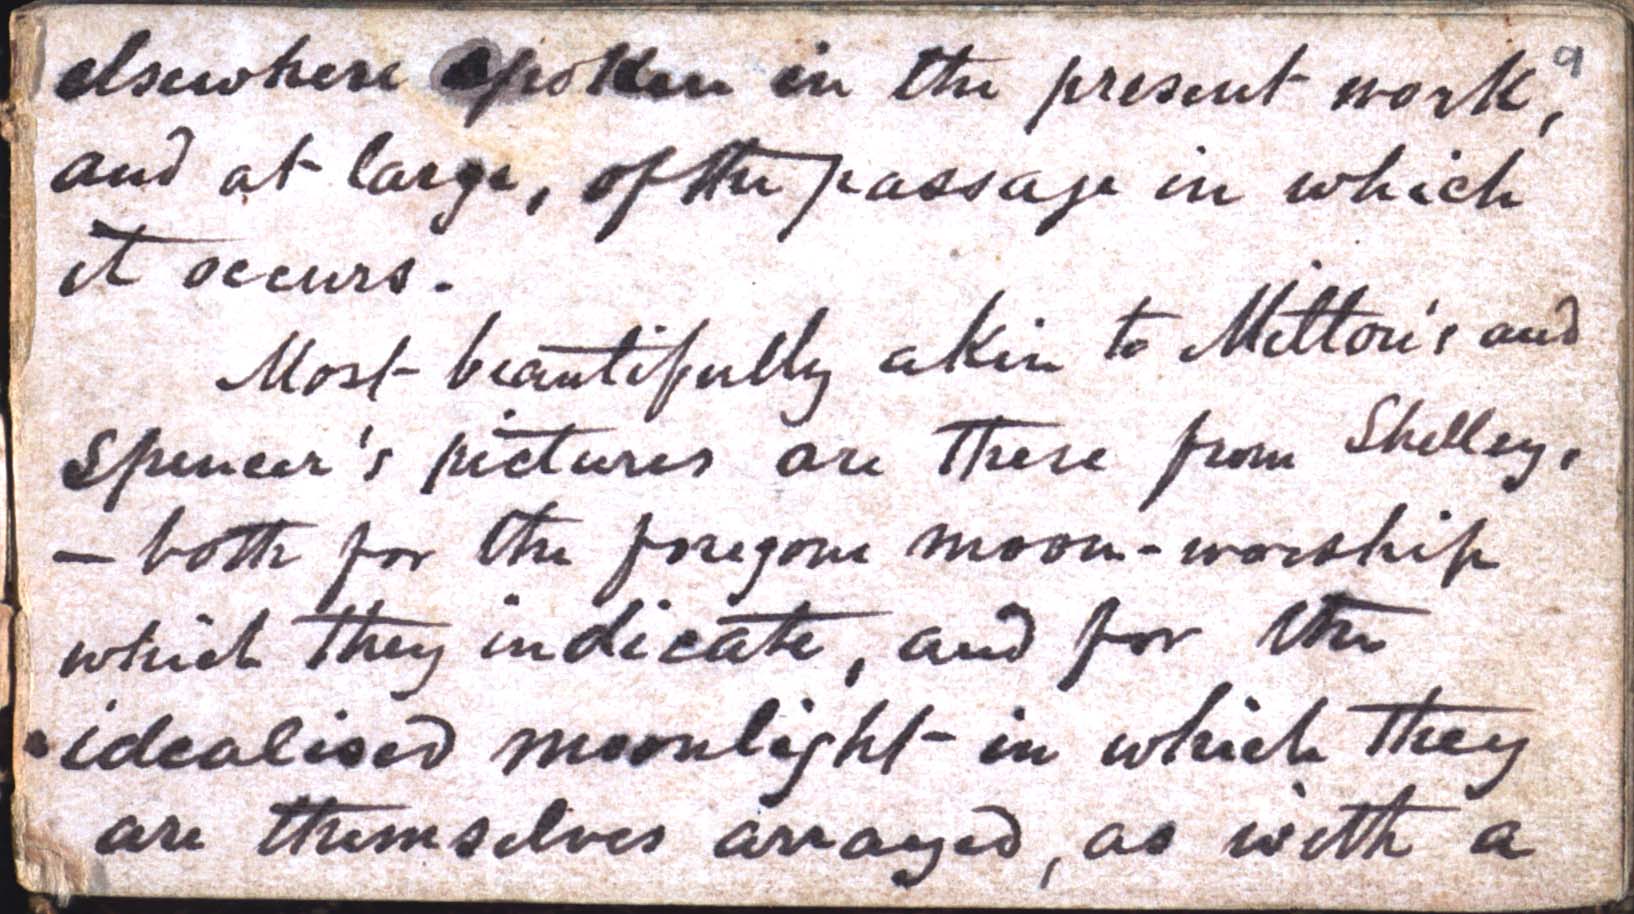 9
elsewhere spoken in the present work,
and at large, of the passage in which
it occurs.
Most beautifully akin to Milton's and
Spencer's pictures are these from Shelley,
— both for the foregone moon-worship
which they indicate, and for the
idealised moonlight in which they
are themselves arrayed, as with a